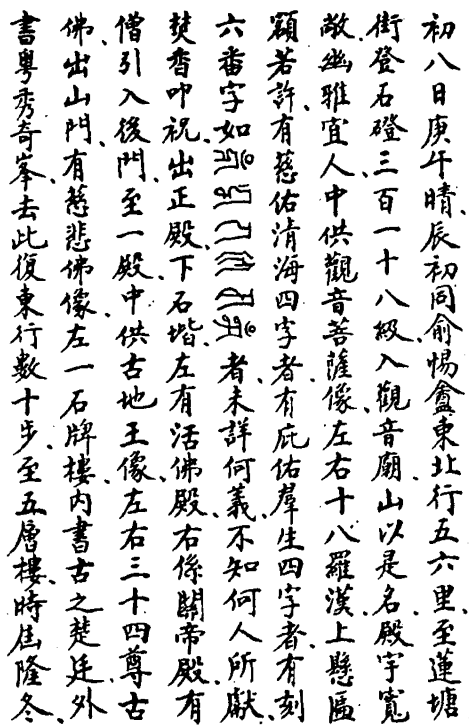 初八日庚午晴、辰初同俞惕盦東北行五六里、至蓮塘
街登石磴三百一十八級、入觀音廟、山以是名、殿宇寬
敞、幽雅宜人、中供觀音菩薩像、左右十八羅漢、上懸匾
額若許、有慈佑清海四字者、有庇佑羣生四字者、有刻
六番字如者、未詳何義、不知何人所獻、
焚香叩祝、出正殿、下石堦、左有活佛殿、右係關帝殿、有
僧引入後門、至一殿、中供古地王像、左右三十四尊古
佛、出山門、有慈悲佛像、左一石牌樓、內書古之楚廷、外
書粵秀奇峯、去此復東行數十步、至五層樓、時值隆冬、